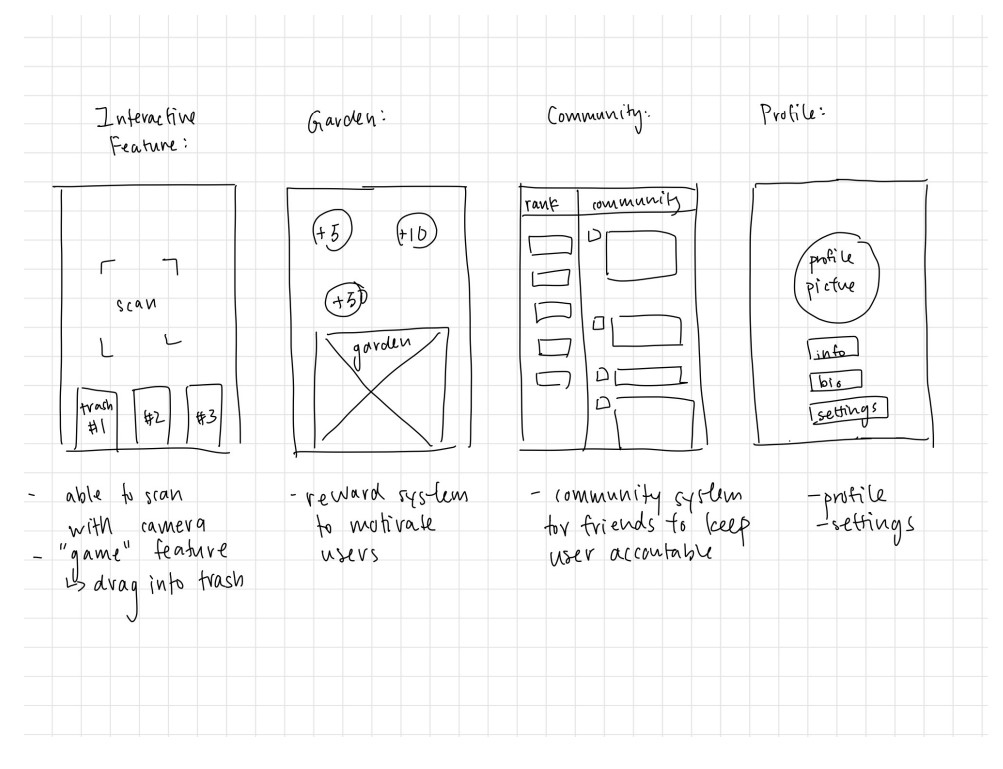 Interactive
Feature:
scan
trash
#1
#2
#3
- able to scan
with camera
- "game" feature
↳ drag into trash
Garden:
+5
+10
+50
garden
- reward system
to motivate
users
Community:
rank
community
- community system
for friends to keep
user accountable
Profile:
profile
pictue
info
bio
settings
- profile
- settings